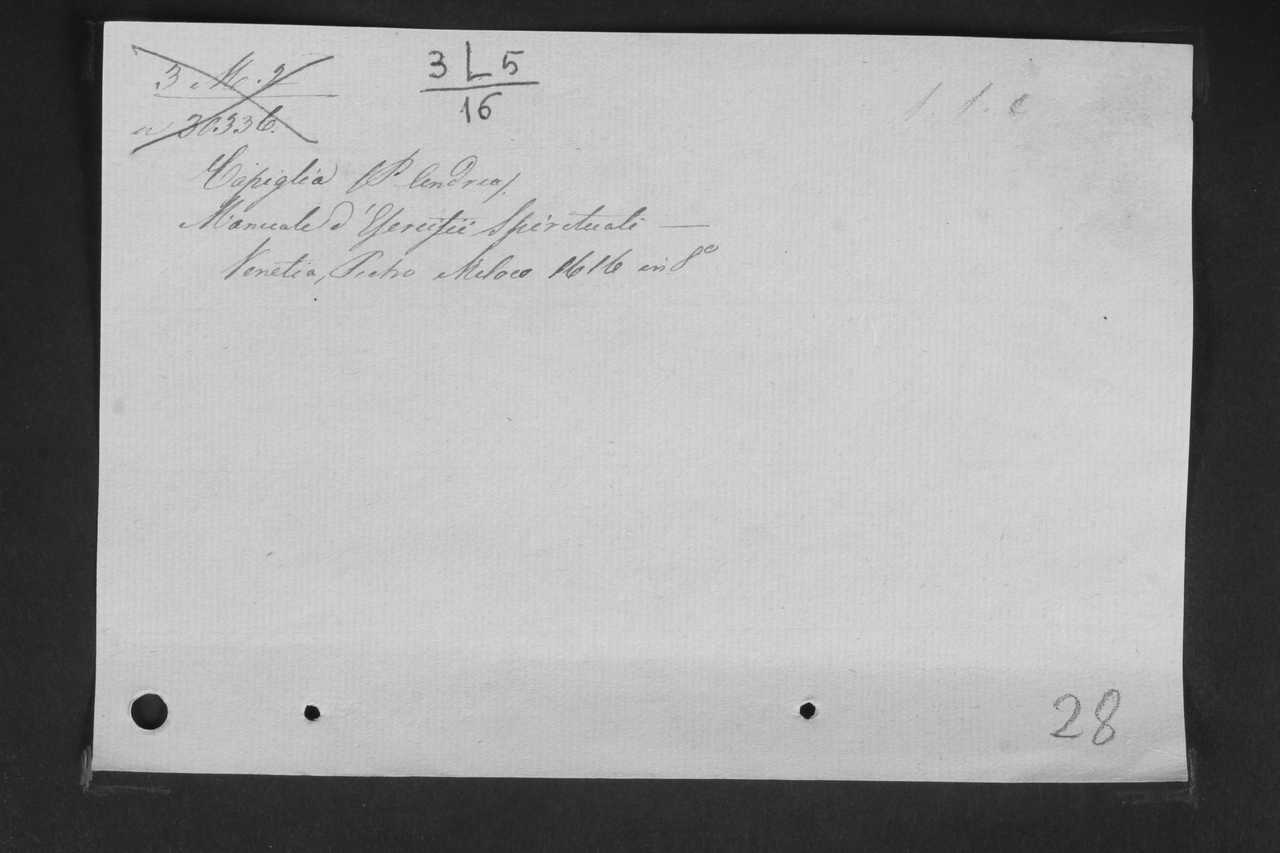 3 M. 9
n 30.336.
3 L 5
16
Capiglia (P. Andrea).
Manuale d'Esercitii Spirituali —
Venetia, Pietro Miloco 1616 in 8º
28